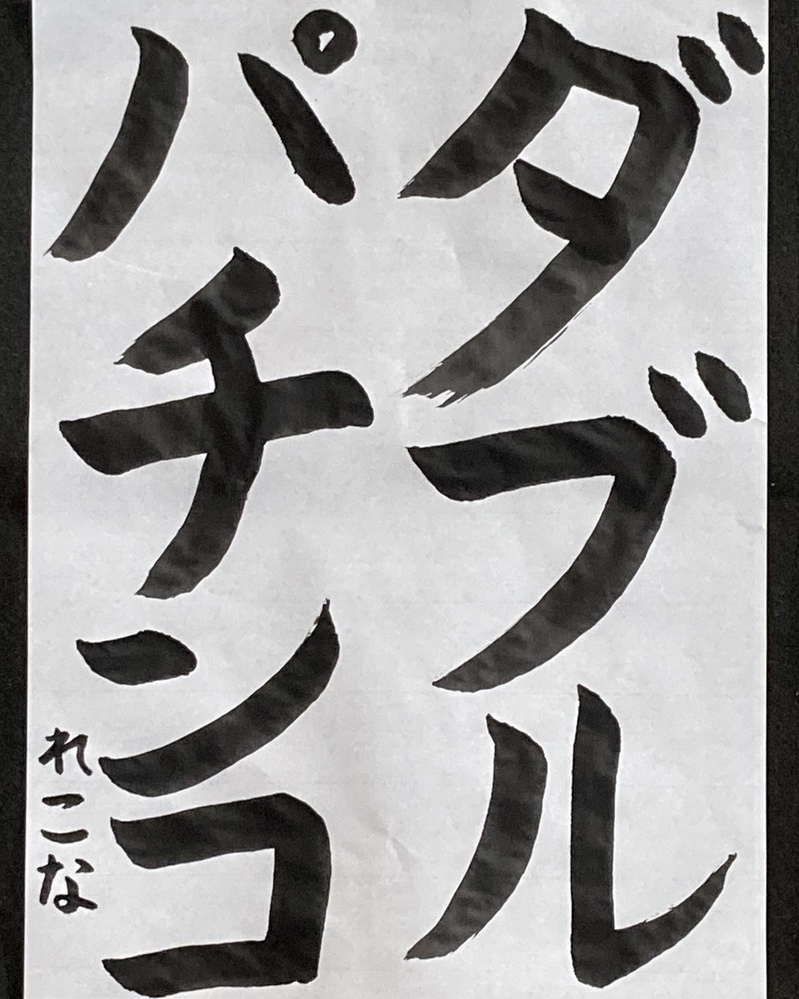 ダブル
パチンコ
れこな